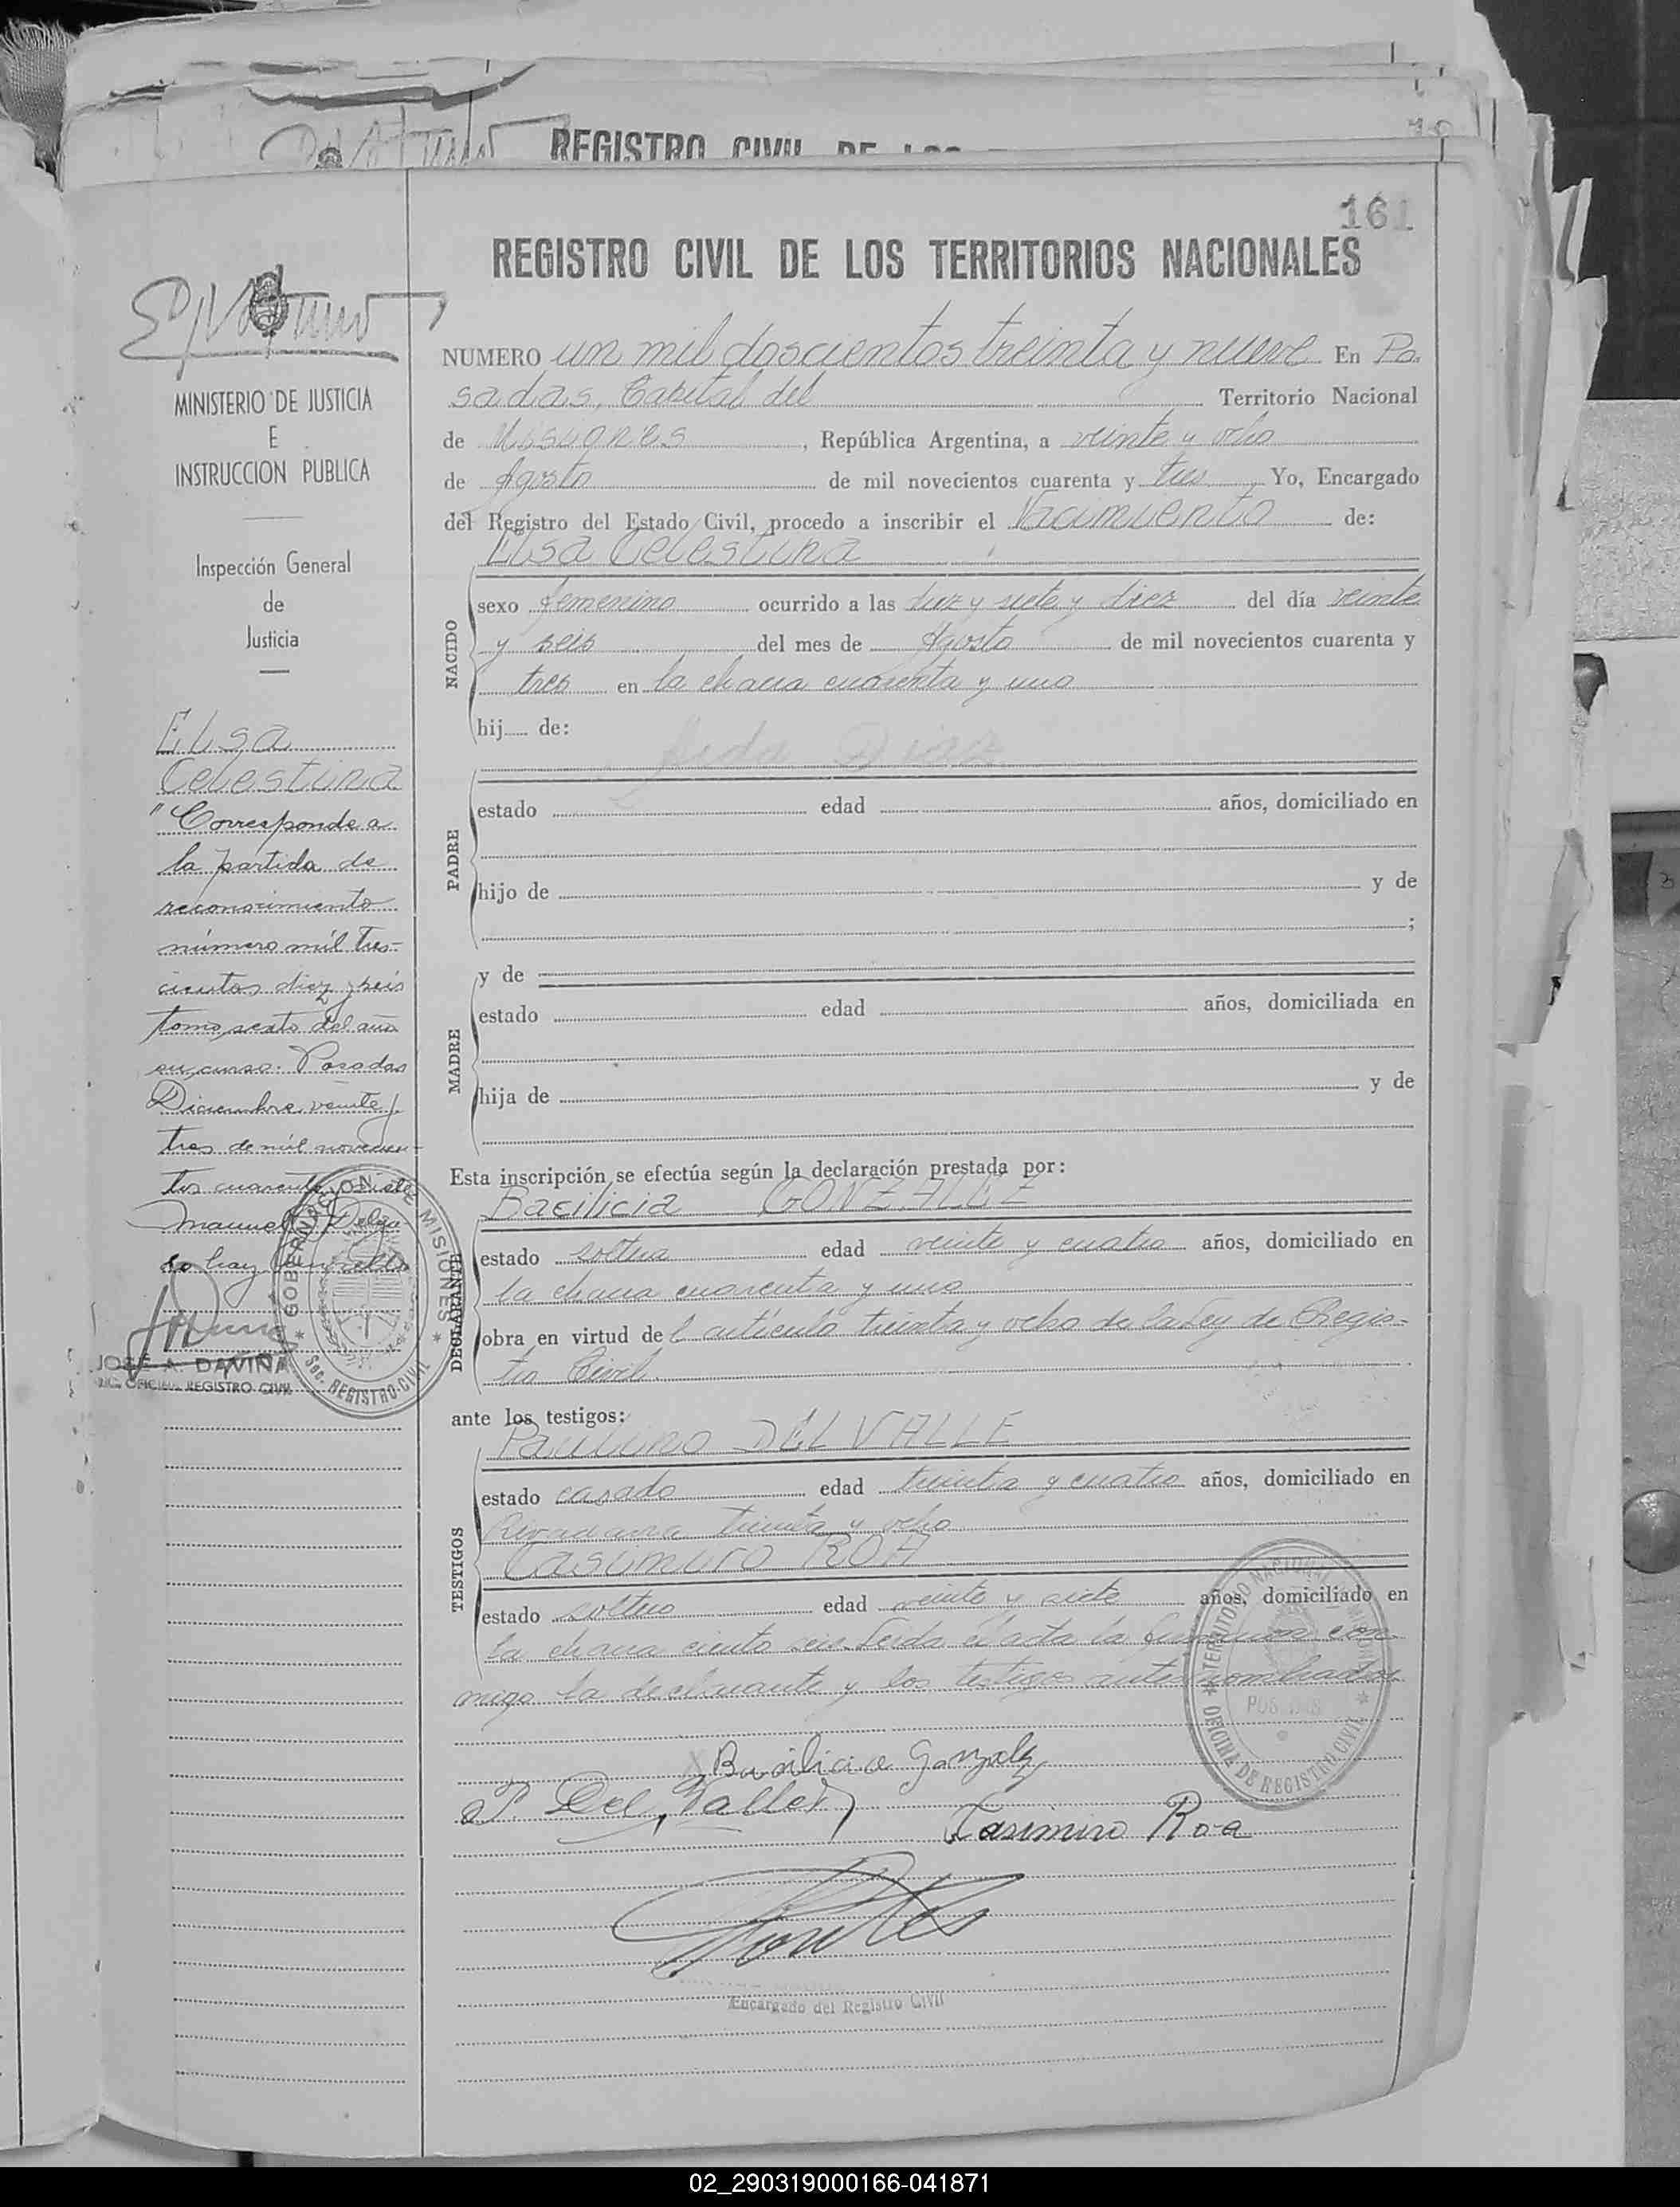 REGISTRO CIVIL DE LOS
161
REGISTRO CIVIL DE LOS TERRITORIOS NACIONALES
MINISTERIO DE JUSTICIA
E
INSTRUCCION PUBLICA
Inspección General
de
Justicia
Elsa
Celestina
"Corresponde a
la partida de
reconocimiento
número mil tres-
cientos diez y seis
tomo sexto del año
en curso. Posadas
Diciembre veinte y
tres de mil novecien-
tos cuarenta y siete
Manuel
JOSE A. DAVIÑA
ENC. OFICINA REGISTRO CIVIL
GOBERNACION DE MISIONES
Sec. REGISTRO CIVIL
NUMERO un mil doscientos treinta y nueve En Po-
sadas, Capital del Territorio Nacional
de Misiones, República Argentina, a veinte y ocho
de Agosto de mil novecientos cuarenta y tres Yo, Encargado
del Registro del Estado Civil, procedo a inscribir el Nacimiento de:
Elsa Celestina
NACIDO
sexo femenino ocurrido a las diez y siete y diez del día veinte
y seis del mes de Agosto de mil novecientos cuarenta y
tres en la chacra cuarenta y uno
hij de:
PADRE
estado edad años, domiciliado en
hijo de y de
;
MADRE
y de
estado edad años, domiciliada en
hija de y de
Esta inscripción se efectúa según la declaración prestada por:
Bacilicia GONZALEZ
DECLARANTE
estado soltera edad veinte y cuatro años, domiciliado en
la chacra cuarenta y uno
obra en virtud del artículo treinta y ocho de la Ley de Regis-
tro Civil.
ante los testigos:
Paulino DEL VALLE
TESTIGOS
estado casado edad treinta y cuatro años, domiciliado en
Rivadavia treinta y ocho
Casimiro ROA
estado soltero edad veinte y siete años, domiciliado en
la chacra ciento seis. Leída el acta la firmaron con-
migo la declarante y los testigos antes nombrados.
TERRITORIO NACIONAL MISIONES
POSADAS
OFICINA DE REGISTRO CIVIL
Basilicia Gonzalez
P. Del Valle
Casimiro Roa
Encargado del Registro Civil
02_290319000166-041871